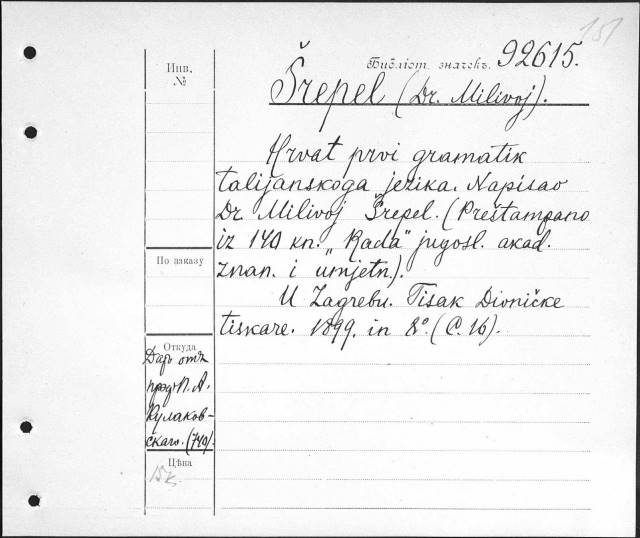 151
Инв. №
Библіот. значекъ. 92615.
Šrepel (Dr. Milivoj).
Hrvat prvi gramatik
talijanskoga jezika. Napisao
Dr Milivoj Šrepel. (Preštampano
iz 140 kn. „Rada“ jugosl. akad.
znan. i umjetn.).
U Zagrebu. Tisak Dioničke
tiskare. 1899. in 8º. (C. 16).
По заказу
Откуда
Даръ отъ
проф. П. А.
Кулаков-
скаго. (740).
Цѣна
15 к.